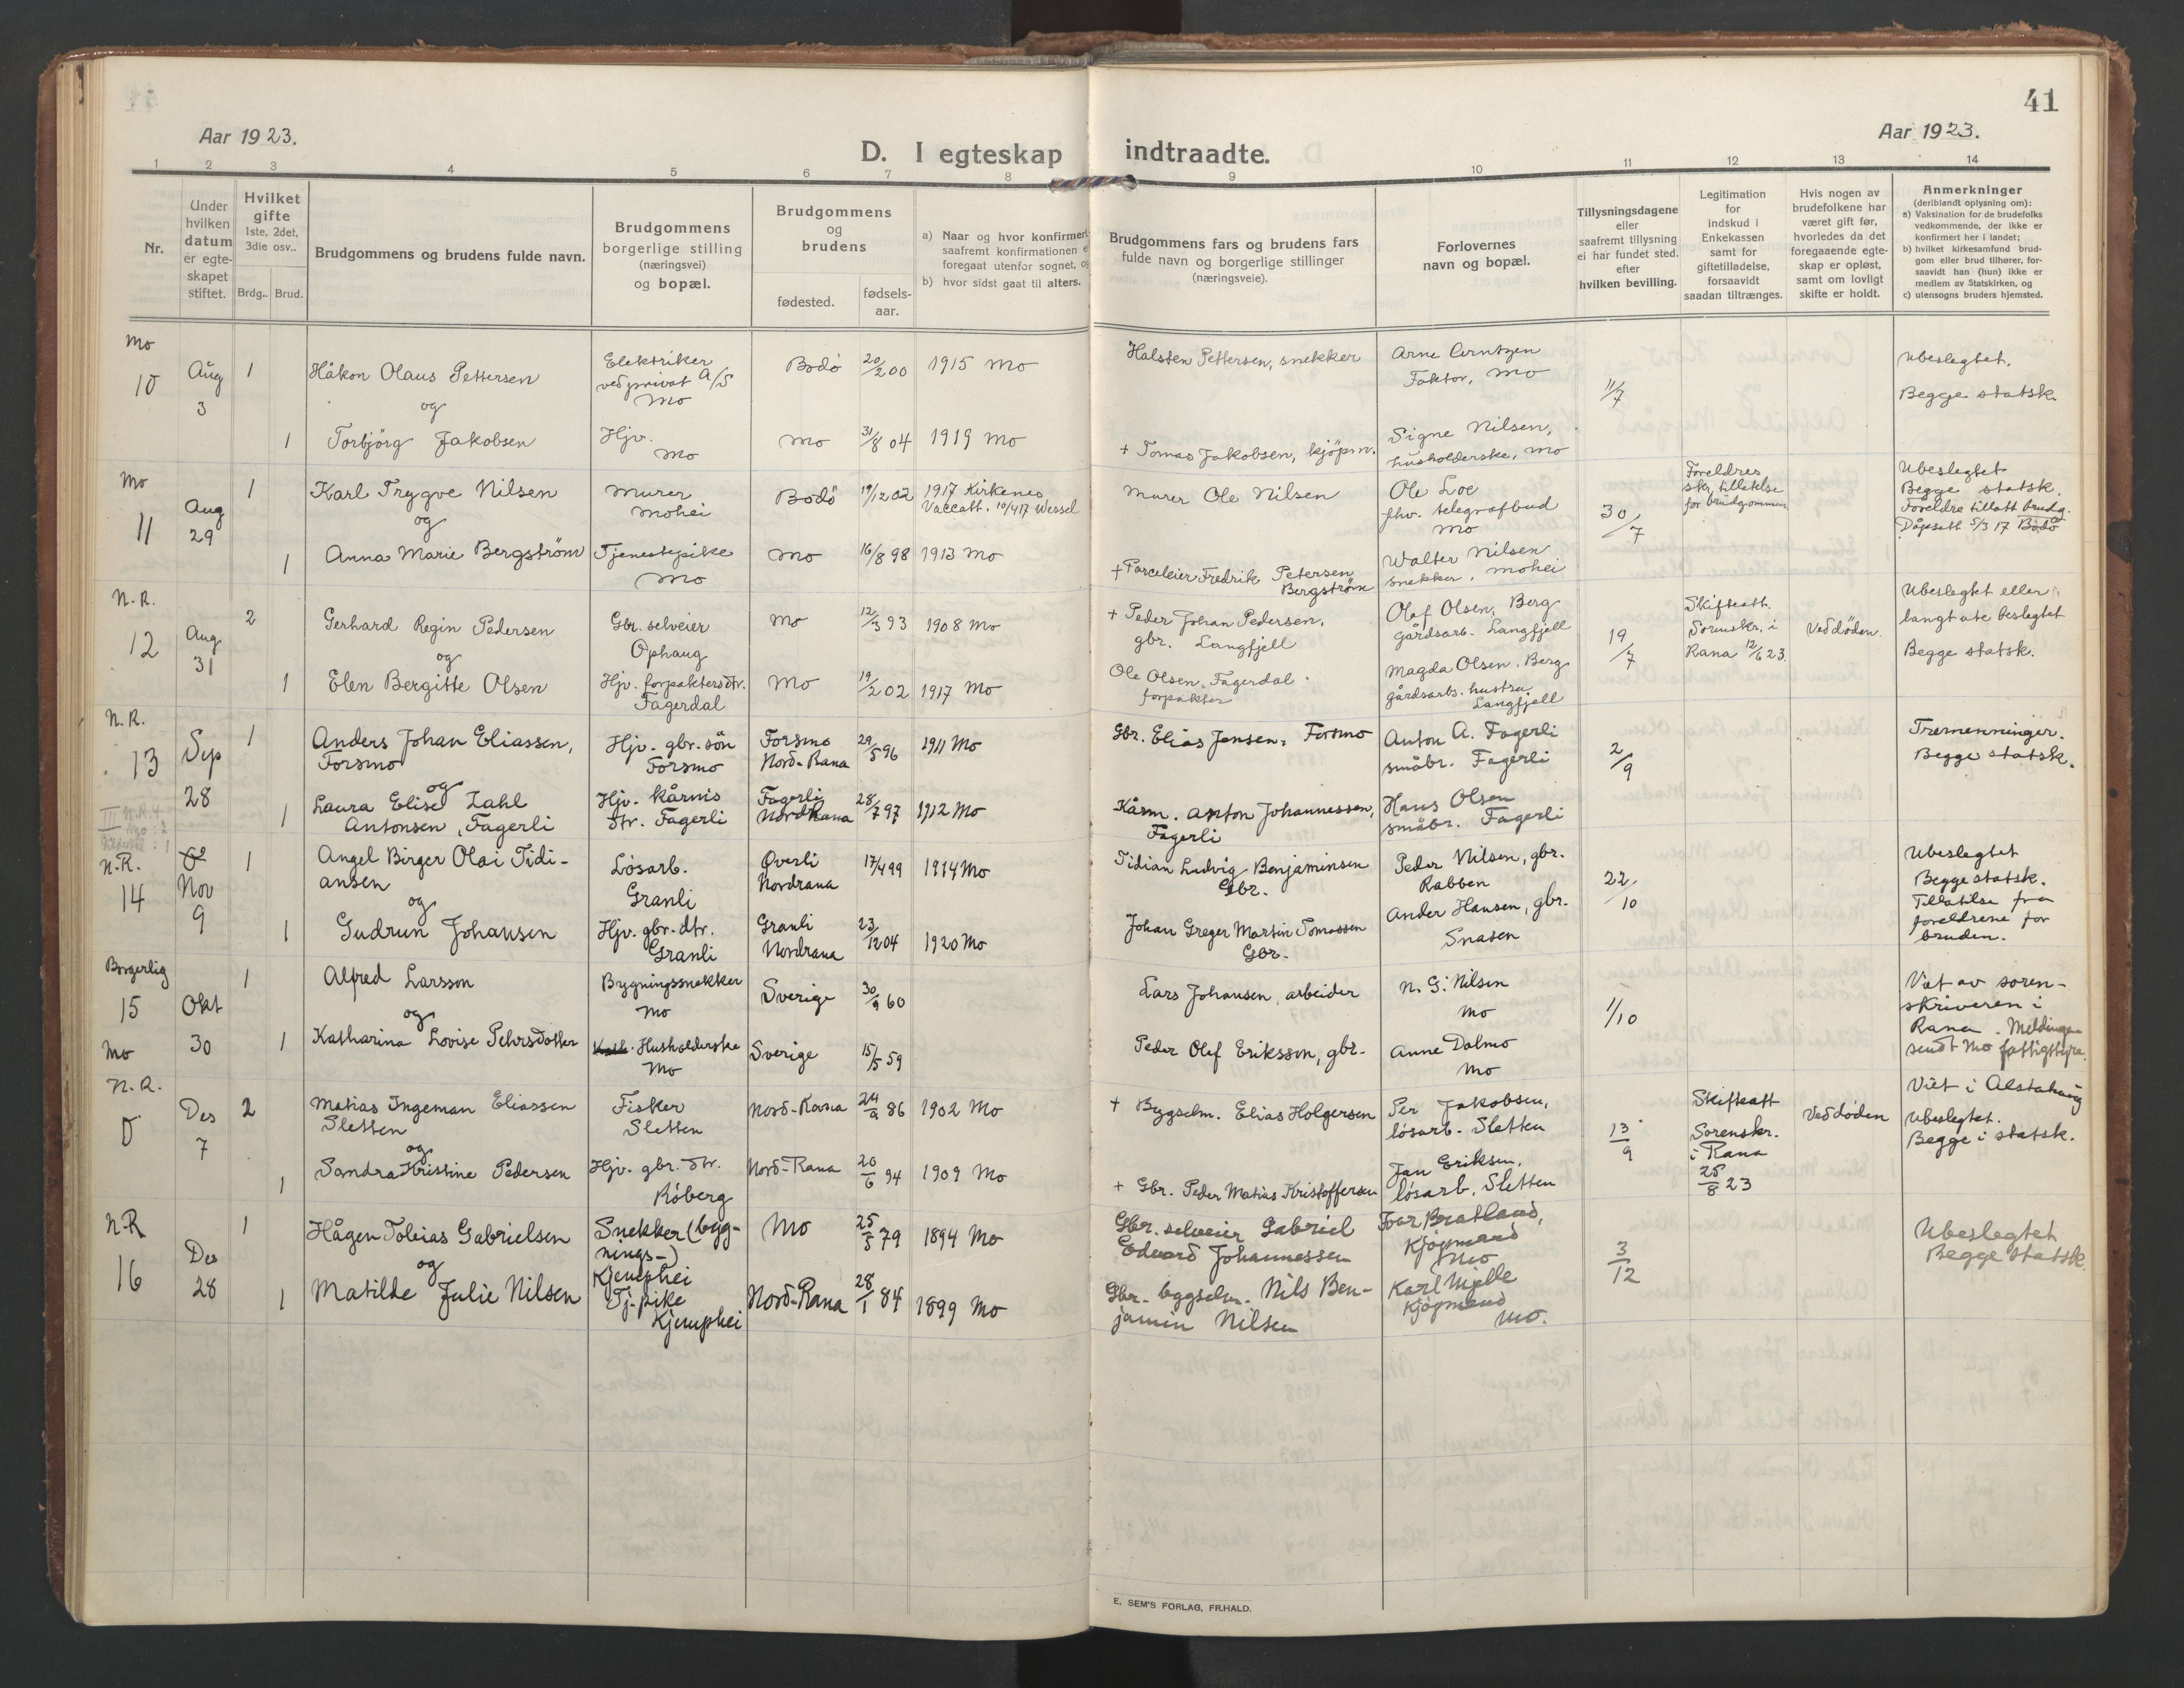 41
Aar 1923.
D. I egteskap indtraadte.
Aar 1923.
1 2 3 4 5 6 7 8 9 10 11 12 13 14
Nr.
Under
hvilken
datum
er egte-
skapet
stiftet.
Hvilket
gifte
1ste, 2det,
3die osv..
Brdg.. Brud.
Brudgommens og brudens fulde navn.
Brudgommens
borgerlige stilling
(næringsvei)
og bopæl.
Brudgommens
og
brudens
fødested.
fødsels-
aar.
a) Naar og hvor konfirmert
saafremt konfirmationen e
foregaat utenfor sognet, og
b) hvor sidst gaat til alters.
Brudgommens fars og brudens fars
fulde navn og borgerlige stillinger
(næringsveie).
Forlovernes
navn og bopæl.
Tillysningsdagene
eller
saafremt tillysning
ei har fundet sted,
efter
hvilken bevilling.
Legitimation
for
indskud i
Enkekassen
samt for
giftetilladelse,
forsaavidt
saadan tiltrænges.
Hvis nogen av
brudefolkene har
været gift før,
hvorledes da det
foregaaende egte-
skap er opløst,
samt om lovligt
skifte er holdt.
Anmerkninger
(deriblandt oplysning om):
a) Vaksination for de brudefolks
vedkommende, der ikke er
konfirmert her i landet;
b) hvilket kirkesamfund brud-
gom eller brud tilhører, for-
saavidt han (hun) ikke er
medlem av Statskirken, og
c) utensogns bruders hjemsted.
Mo
10
Aug
3
1
Håkon Olaus Pettersen
og
Elektriker
ved privat A/S
Mo
Bodö
20/2 00
1915 Mo
Halsten Pettersen, snekker
Arne Arntzen
Faktor, Mo
11/7
Ubeslegtet.
Begge statsk.
1
Torbjörg Jakobsen
Hjv.
Mo
Mo
31/8 04
1919 Mo
+ Tomas Jakobsen, kjöpm.
Signe Nilsen,
husholderske, Mo
Mo
11
Aug
29
1
Karl Trygve Nilsen
og
Murer
Mohei
Bodö
19/12 02
1917 Kirkenes
Vaccatt. 10/4 17 Wessel
Murer Ole Nilsen
Ole Loe
fhv. telegrafbud
Mo
30/7
Foreldres
skr. tillatelse
for brudgommen
Ubeslegtet
Begge statsk.
Foreldre tillatt brudg.
Dåpsatt 5/3 17 Bodö
1
Anna Marie Bergström
Tjenestepike
Mo
Mo
16/8 98
1913 Mo
+ Parceleier Fredrik Petersen
Bergström
Walter Nilsen
snekker, Mohei
N.R.
12
Aug
31
2
Gerhard Regin Pedersen
og
Gbr. selveier
Ophaug
Mo
12/3 93
1908 Mo
+ Peder Johan Pedersen,
gbr. Langfjell
Olaf Olsen, Berg
gårdsarb. Langfjell
19/7
Skifteatt.
Sorenskr. i
Rana 12/6 23.
Ved döden.
Ubeslegtet eller
langt ute beslegtet
Begge statsk.
1
Elen Bergitte Olsen
Hjv. forpaktersdtr.
Fagerdal
Mo
19/2 02
1917 Mo
Ole Olsen, Fagerdal
forpakter
Magda Olsen, Berg
gårdsarb. hustru
Langfjell
N.R.
13
Sep
28
1
Anders Johan Eliassen,
Forsmo
og
Hjv. gbr. sön
Forsmo
Forsmo
Nord-Rana
29/5 96
1911 Mo
Gbr. Elias Jensen, Forsmo
Anton A. Fagerli
småbr. Fagerli
2/9
Tremenninger.
Begge statsk.
1
Laura Elise Zahl
Antonsen, Fagerli
Hjv. kårm's
dtr. Fagerli
Fagerli
Nord Rana
28/7 97
1912 Mo
Kårm. Anton Johannessen,
Fagerli
Hans Olsen
småbr. Fagerli
N.R.
14
Nov
9
1
Angel Birger Olai Tidi-
ansen
og
Lösarb.
Granli
Överli
Nordrana
17/4 99
1914 Mo
Tidian Ludvig Benjaminsen
Gbr.
Peder Nilsen, gbr.
Rabben
22/10
Ubeslegtet
Begge statsk.
Tillatelse fra
foreldrene for
bruden.
1
Gudrun Johansen
Hjv. gbr. dtr.
Granli
Granli
Nordrana
23/12 04
1920 Mo
Johan Greger Martin Tomassen
Gbr.
Ander Hansen, gbr.
Snasen
Borgerlig
15
Mo
Okt
30
1
Alfred Larsson
og
Bygningssnekker
Mo
Sverige
30/9 60
Lars Johansen, arbeider
N. G. Nilsen
Mo
1/10
Viet av soren-
skriveren i
Rana. Meldingen
sendt Mo fattigstyre.
1
Katharina Lovise Pehrsdotter
Husholderske
Mo
Sverige
15/5 59
Peder Olof Eriksson, gbr.
Anne Dalmo
Mo
N.R.
0
Des
7
2
Matias Ingeman Eliassen
Sletten
og
Fisker
Sletten
Nord-Rana
24/9 86
1902 Mo
+ Bygselm. Elias Holgersen
Per Jakobsen,
lösarb. Sletten
13/9
Skifteatt
Sorenskr.
i Rana
25/8 23
Ved döden
Viet i Alstahaug
Ubeslegtet.
Begge i statsk.
1
Sandra Kristine Pedersen
Hjv. gbr. dtr.
Röberg
Nord-Rana
20/6 94
1909 Mo
+ Gbr. Peder Matias Kristoffersen
Jan Eriksen,
lösarb, Sletten
N.R
16
Des
28
1
Hågen Tobias Gabrielsen
og
Snekker (byg-
nings-)
Kjemphei
Mo
25/5 79
1894 Mo
Gbr. selveier Gabriel
Edvard Johannessen
Ivar Bratland,
Kjöpmand
Mo
3/12
Ubeslegtet
Begge statsk.
1
Matilde Julie Nilsen
Tj. pike
Kjemphei
Nord-Rana
28/1 84
1899 Mo
Gbr. bygselm. Nils Ben-
jamin Nilsen
Karl Mjelle
Kjöpmand
Mo.
E. SEM'S FORLAG, FR.HALD.